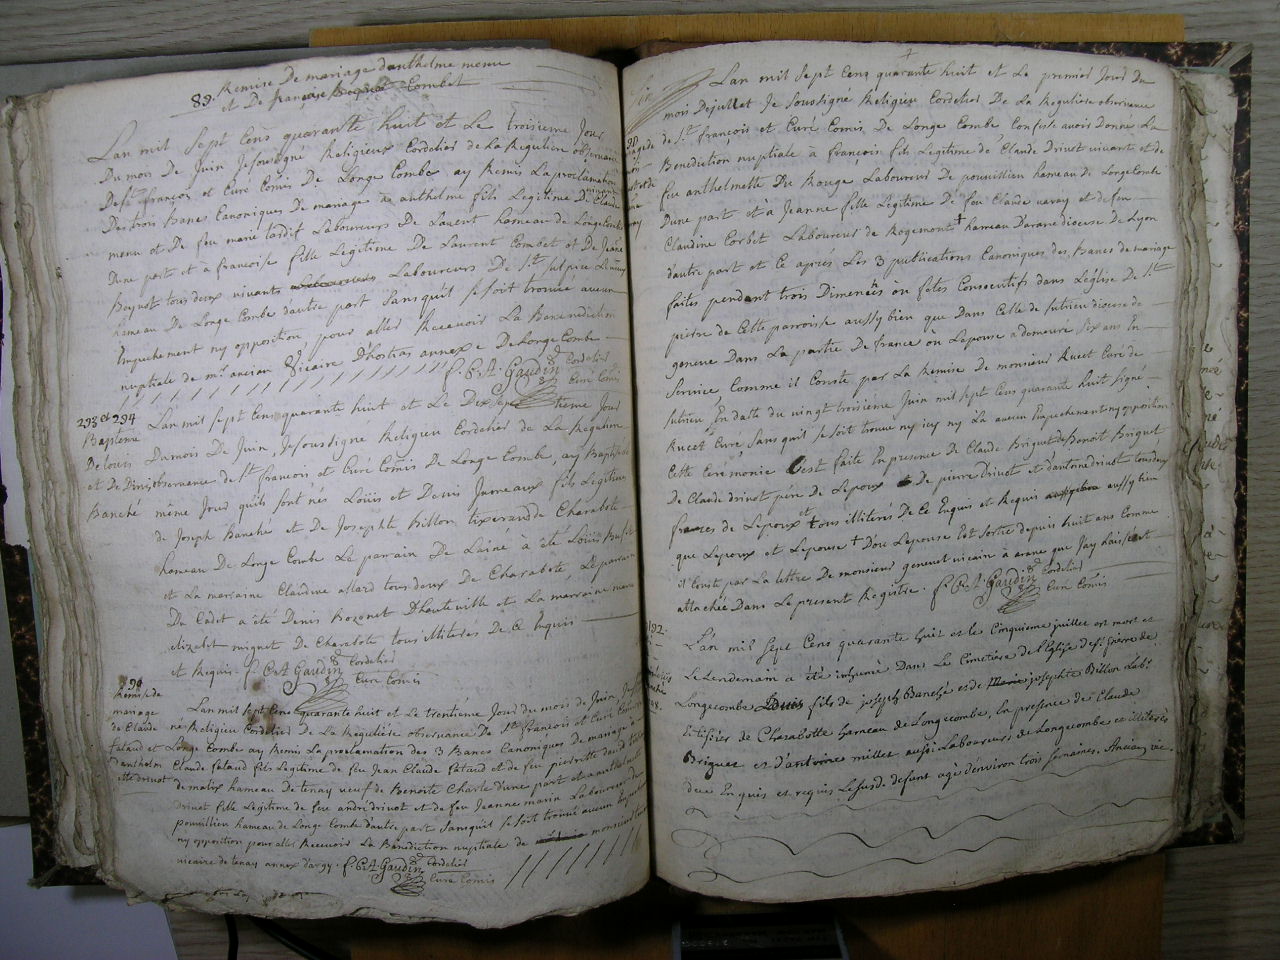 89. Remise De mariage danthelme menu
et De françoise Combet
Lan mil sept Cens quarante huit et Le troisieme Jour
Du mois De Juin Je soussigné Religieux Cordelier De La Reguliere observance
De st françois et Curé Comis De Longe Combe ay Remis La proclamation
Des trois Bancs Canoniques De mariage à anthelme fils Legitime De Claude
menu et De feu marie tardif Laboureurs De Lavent hameau de Longe Combe
Dune part et à francoise fille Legitime De Laurent Combet et De Jeane
Boynet tous deux vivants Laboureurs De St sulpice
hameau De Longe Combe Dautre part sans quil se soit trouvée aucun
Empechement ny opposition pour aller Recevoir La Benediction
nuptiale de mr ancian Vicaire Dhostias annexe De Longe Combe
f. C. A. Gaudin Cordelier
Curé Comis
293 et 294
Baptême
De Louis
et De Denis
Banché
Lan mil sept Cens quarante huit et Le Dix septieme Jour
Du mois De Juin, Je soussigné Religieu Cordelier de La Reguliere
observance de St francois et Curé Comis De Longe Combe, ay Baptisé
même Jour quils sont nés Loüis et Denis Jumeaux fils Legitime
de Joseph Banché et De Josephte Billon tixerand De Charabote
hameau De Longe Combe Le parrain De Lainé à été Loüis
et La marraine Claudine allard tous deux de Charabote, Le parrain
Du Cadet a été Denis Bozonet Dhauteville et La marraine
elizabet minguet De Charabote tous illiterés De Ce Inquis
et Requis f. C. A. Gaudin Cordelier
Curé Comis
90
Remise de
mariage
de Claude
fataud et
Danthelm
ette drivet
Lan mil sept Cens quarante huit et Le trentieme Jour Du mois de Juin
Religieu Cordelier De La Reguliere observance De St francois et Curé Comis
Longe Combe ay Remis La proclamation des 3 Bancs Canoniques De mariage
Claude fataud fils Legitime de feu Jean Claude fataud et de feu pierrette
de malix hameau de tenay veuf de Benoite Charle dune part et a anthelmette
Drivet fille Legitime de feu andré drivot et de feu Jeanne marin Laboureur
pouvillieu hameau de Longe Combe dautre part sans quil se soit trouvé aucun
ny opposition pour aller Recevoir La Benediction nuptiale de monsieur
vicaire de tenay annexe dargy. f. C. A. Gaudin Cordelier
Curé Comis
Lan mil sept Cens quarante huit et Le premier Jour Du
mois Dejuillet Je soussigné Religieu Cordelier De La Reguliere observance
de St françois et Curé Comis De Longe Combe, Confesse avoir Donné La
Benediction nuptiale à francois fils Legitime de Claude Drivot vivant et de
feu anthelmette Du Rouge Laboureur De pouvillieu hameau de Longe Combe
Dune part et à Jeanne fille Legitime De feu Claude varay et de feu
Claudine Corbet Laboureur de Rogemont † hameau Darane diocese de Lyon
dautre part et Ce apres Les 3 publications Canoniques des Bancs de mariage
faites pendant trois Dimenches ou fetes Consecutifs dans Léglise De St
pierre de Cette parroisse aussy bien que Dans Celle de sutrieu diocese de
geneve Dans La partie De france où Lepouse à demeuré six ans En
service, Comme il Conste par La Remise de monsieur Rucet Curé de
sutrieu En datte du vingt troisième Juin mil sept Cens quarante huit signé
Rucet Curé, sans quil se soit trouvé ny icy ny Là aucun Empechement ny opposition
Cette Ceremonie s'est faite En presence De Claude Briguet de Benoit Briguet
De Claude drivot père de Lepoux De pierre drivot et d'antoine drivot tous deux
freres de Lepoux et tous illiterés De Ce Inquis et Requis aussy bien
que Lepoux et Lepouse † Doù Lepouse Est sortie depuis huit ans Comme
il Conste par La Lettre De monsieur genevet vicaire à arane que Jay Laissé
attachée Dans Le present Registre. f. C. A. Gaudin Cordelier
Curé Comis
192.
L'an mil sept Cens quarante huit et le Cinquieme juillet est mort et
Le Lendemain a été inhumé Dans Le Cimetière de l'Eglise de st pierre de
Longecombe Loüis fils de joseph Banché et de josephte Billon Labr
et tissier de Charabotte hameau de Longecombe, En presence de Claude
Briguet et d'antoine millet aussi Laboureurs de Longecombe et illiterés
de ce Enquis et requis Le susd. defunt agé d'environ trois semaines. Ancian vic.